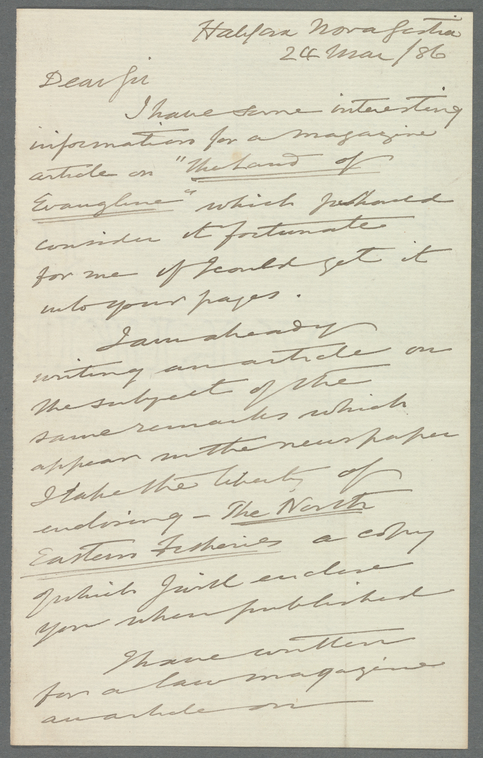 Halifax Nova Scotia
24 Mar /86
Dear Sir
I have some interesting
information for a magazine
article on "The Land of
Evangline" which I should
consider it fortunate
for me if I could get it
into your pages.
I am already
writing an article on
the subject of the
same remarks which
appear in the newspaper
I take the liberty of
enclosing - The North
Eastern Fisheries a copy
of which I will enclose
you when published
I have written
for a law magazine
an article on